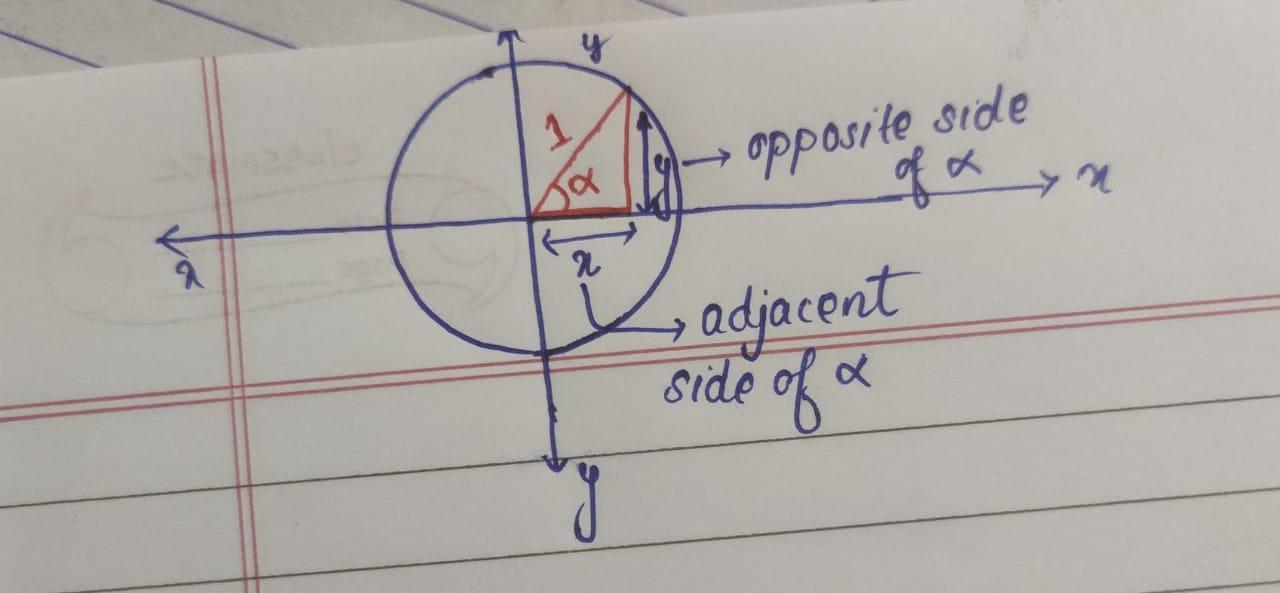 y
1
α
y
opposite side
of α
x
x
x
adjacent
side of α
y